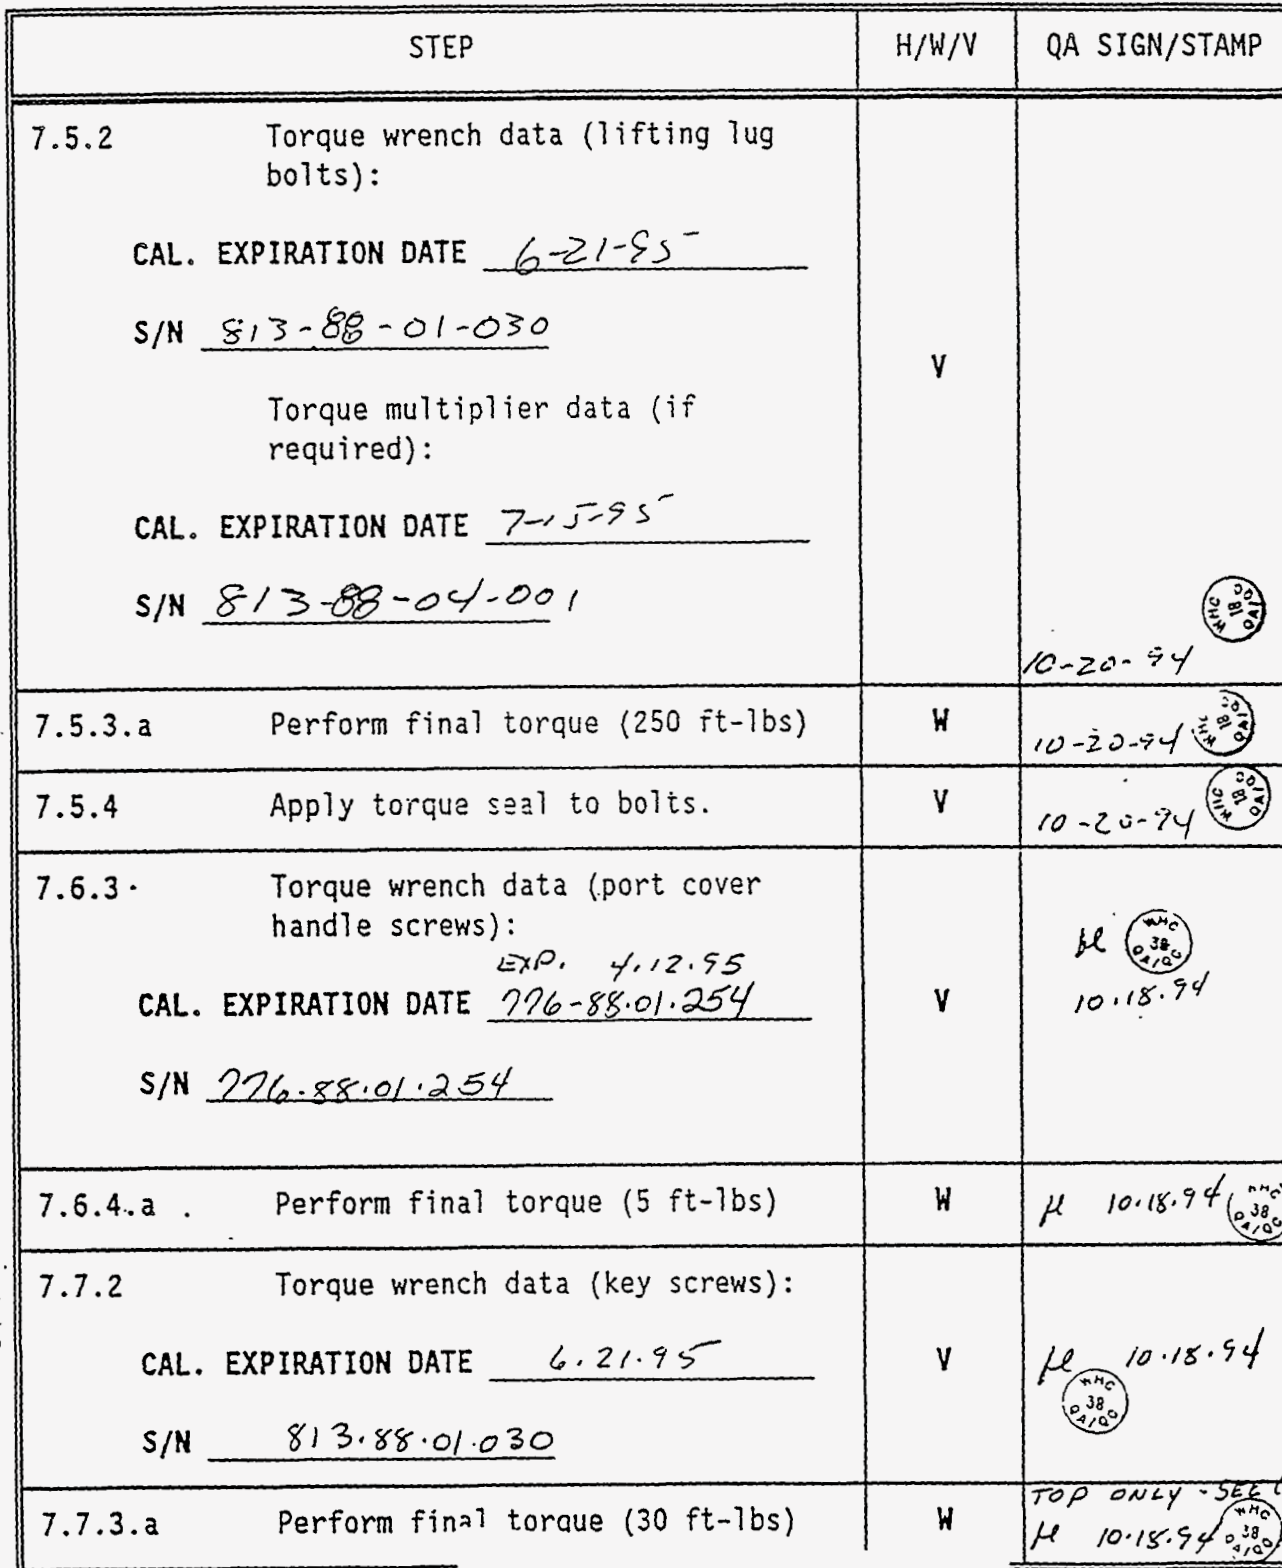 STEP H/W/V QA SIGN/STAMP
7.5.2 Torque wrench data (lifting lug
bolts):
CAL. EXPIRATION DATE 6-21-95
S/N 813-88-01-030
V
Torque multiplier data (if
required):
CAL. EXPIRATION DATE 7-15-95
S/N 813-88-04-001
WHC 18 QA/QC
10-20-94
7.5.3.a Perform final torque (250 ft-lbs) W 10-20-94 WHC 18 QA/QC
7.5.4 Apply torque seal to bolts. V 10-20-94 WHC 18 QA/QC
7.6.3 Torque wrench data (port cover
handle screws):
WHC 38 QA/QC
EXP. 4.12.95
CAL. EXPIRATION DATE 776-88.01.254 V 10.18.94
S/N 776.88.01.254
7.6.4.a Perform final torque (5 ft-lbs) W 10.18.94 WHC 38 QA/QC
7.7.2 Torque wrench data (key screws):
CAL. EXPIRATION DATE 6.21.95 V 10.18.94
WHC 38 QA/QC
S/N 813.88.01.030
TOP ONLY - SEE
7.7.3.a Perform final torque (30 ft-lbs) W 10.18.94 WHC 38 QA/QC